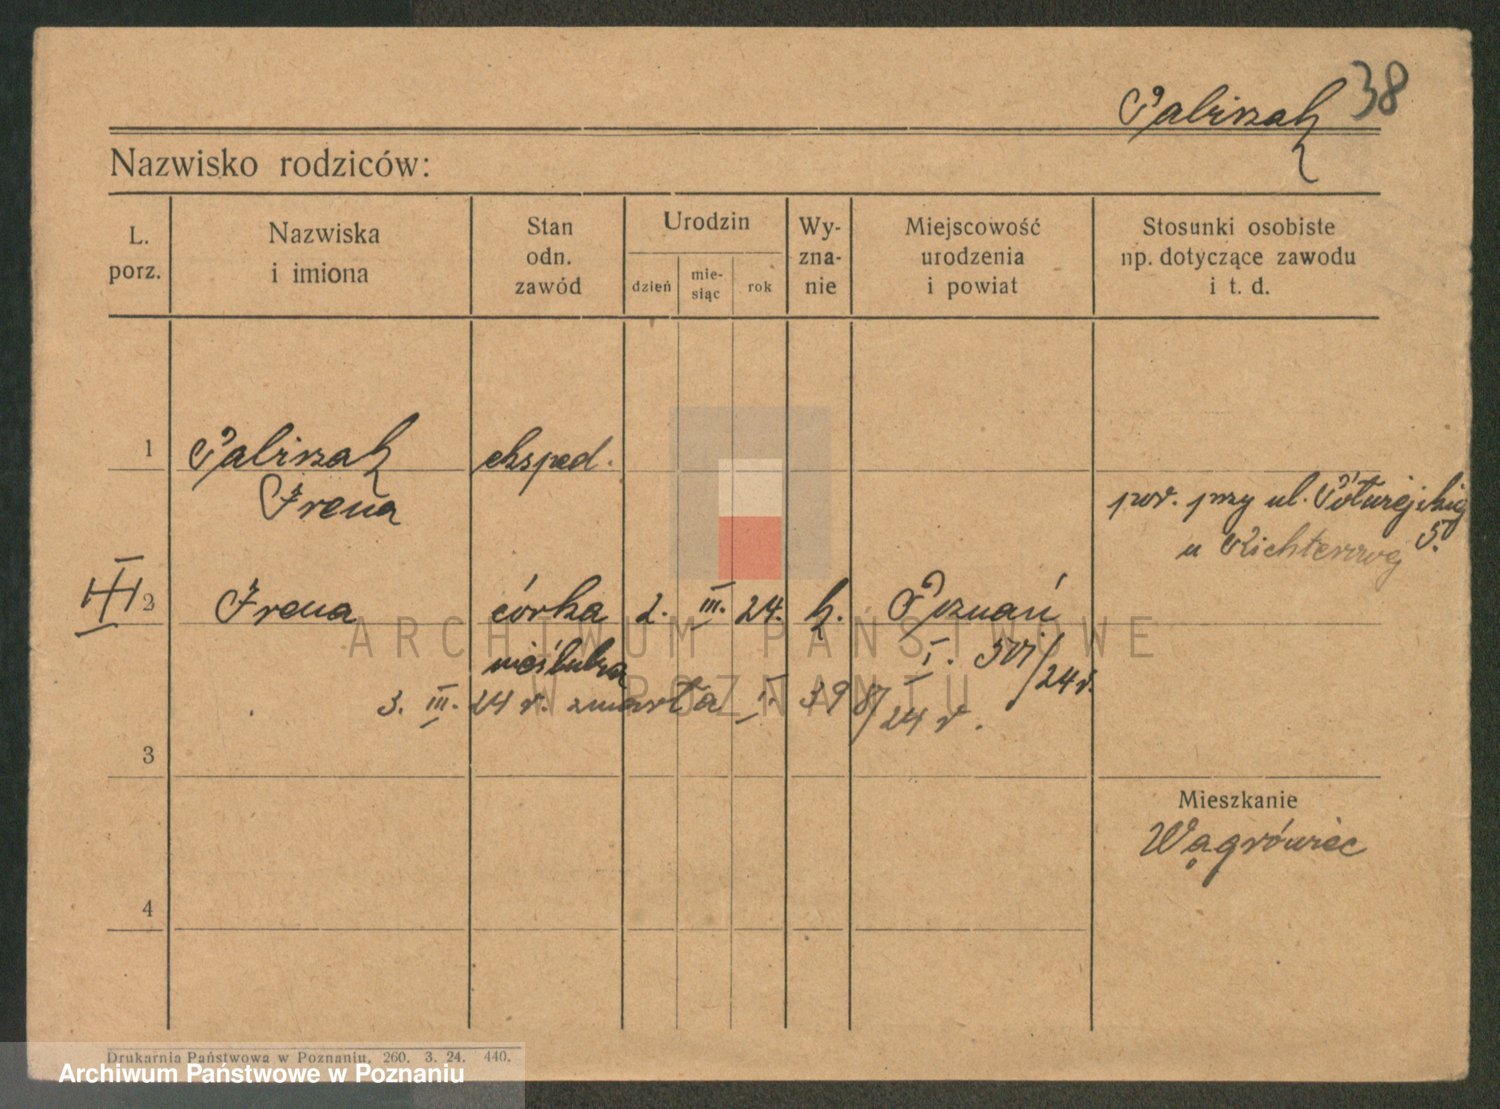 38
Pabiszak
Nazwisko rodziców:
L. porz.
Nazwiska i imiona
Stan odn. zawód
Urodzin
dzień
mie- siąc
rok
Wy- zna- nie
Miejscowość urodzenia i powiat
Stosunki osobiste np. dotyczące zawodu i t. d.
1 Pabiszak eksped.
Irena
por. przy ul.
5.
u Richterowej
III 2 Irena córka 2. III. 24. k. Poznań
nieślubna I. 501/24 r.
3. III. 24 r. zmarła I. 398/24 r.
3
Mieszkanie
Wągrówiec
4
Drukarnia Państwowa w Poznaniu, 260. 3. 24. 440.
ARCHIWUM PAŃSTWOWE
W POZNANIU
Archiwum Państwowe w Poznaniu